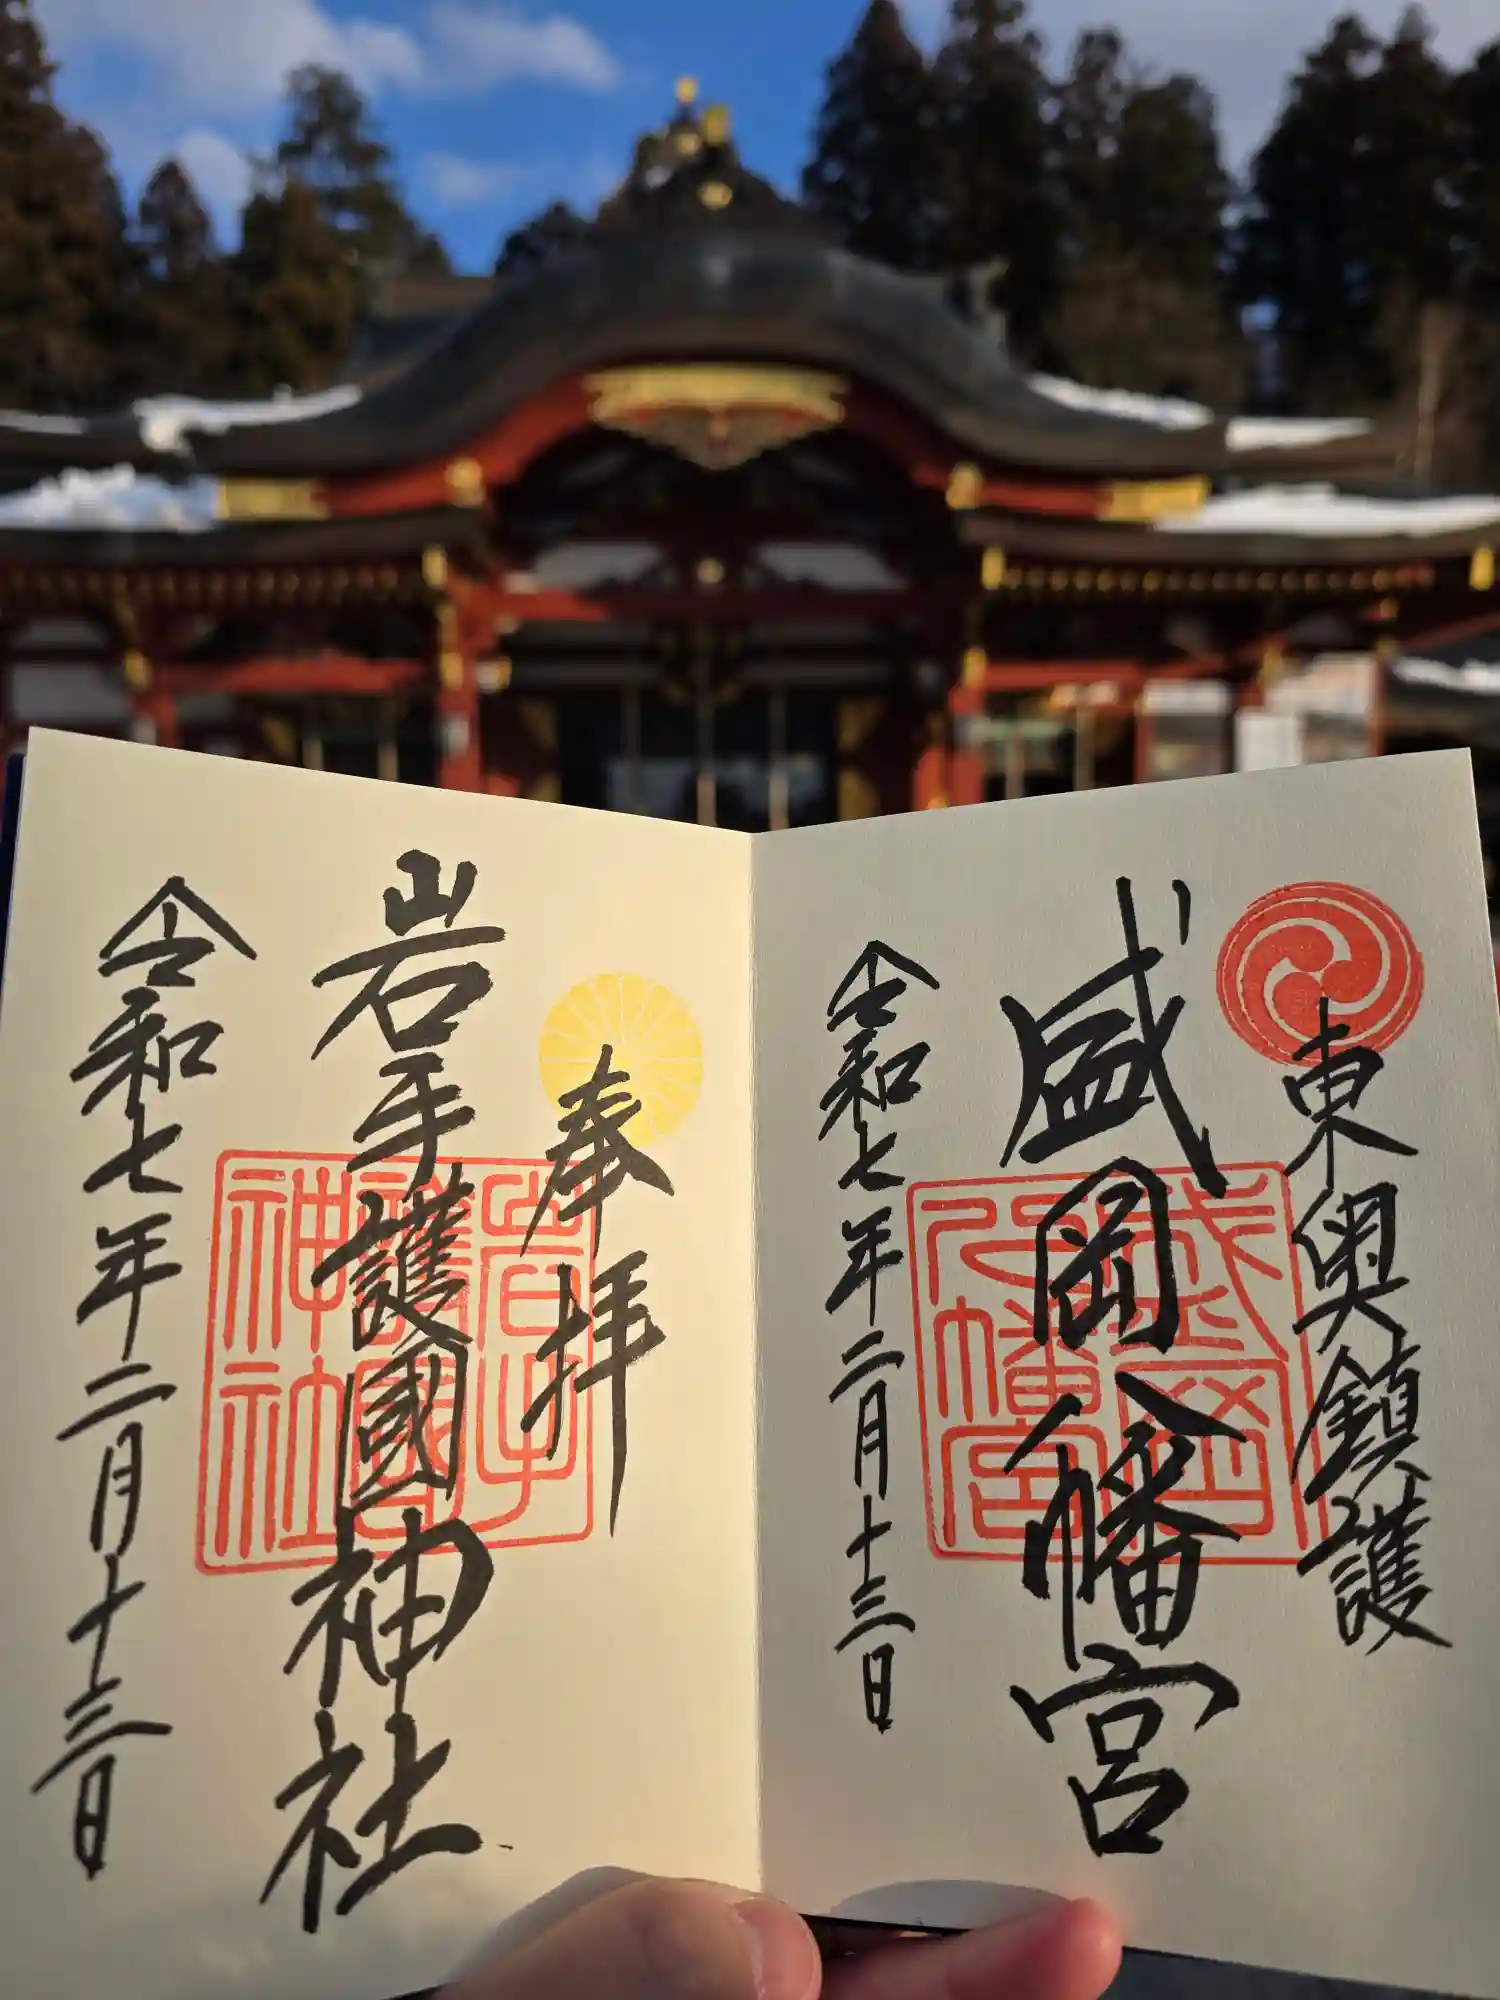 東奥鎮護
盛岡八幡宮
令和七年二月十三日
盛岡八幡宮
奉拝
岩手護國神社
令和七年二月十三日
岩手護國神社